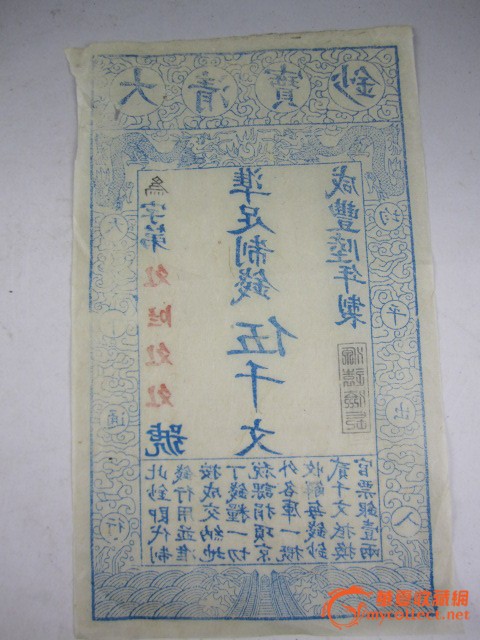 大清寶鈔
天下通行
字第
號
準足制錢伍千文
咸豐陸年製
均平出入
此鈔即代制
錢行用並准
按成交納地
丁錢糧一切
稅課捐項京
外各庫一概
收解每錢鈔
貳千文抵換
官票銀壹兩
華夏收藏网
mycollect.net